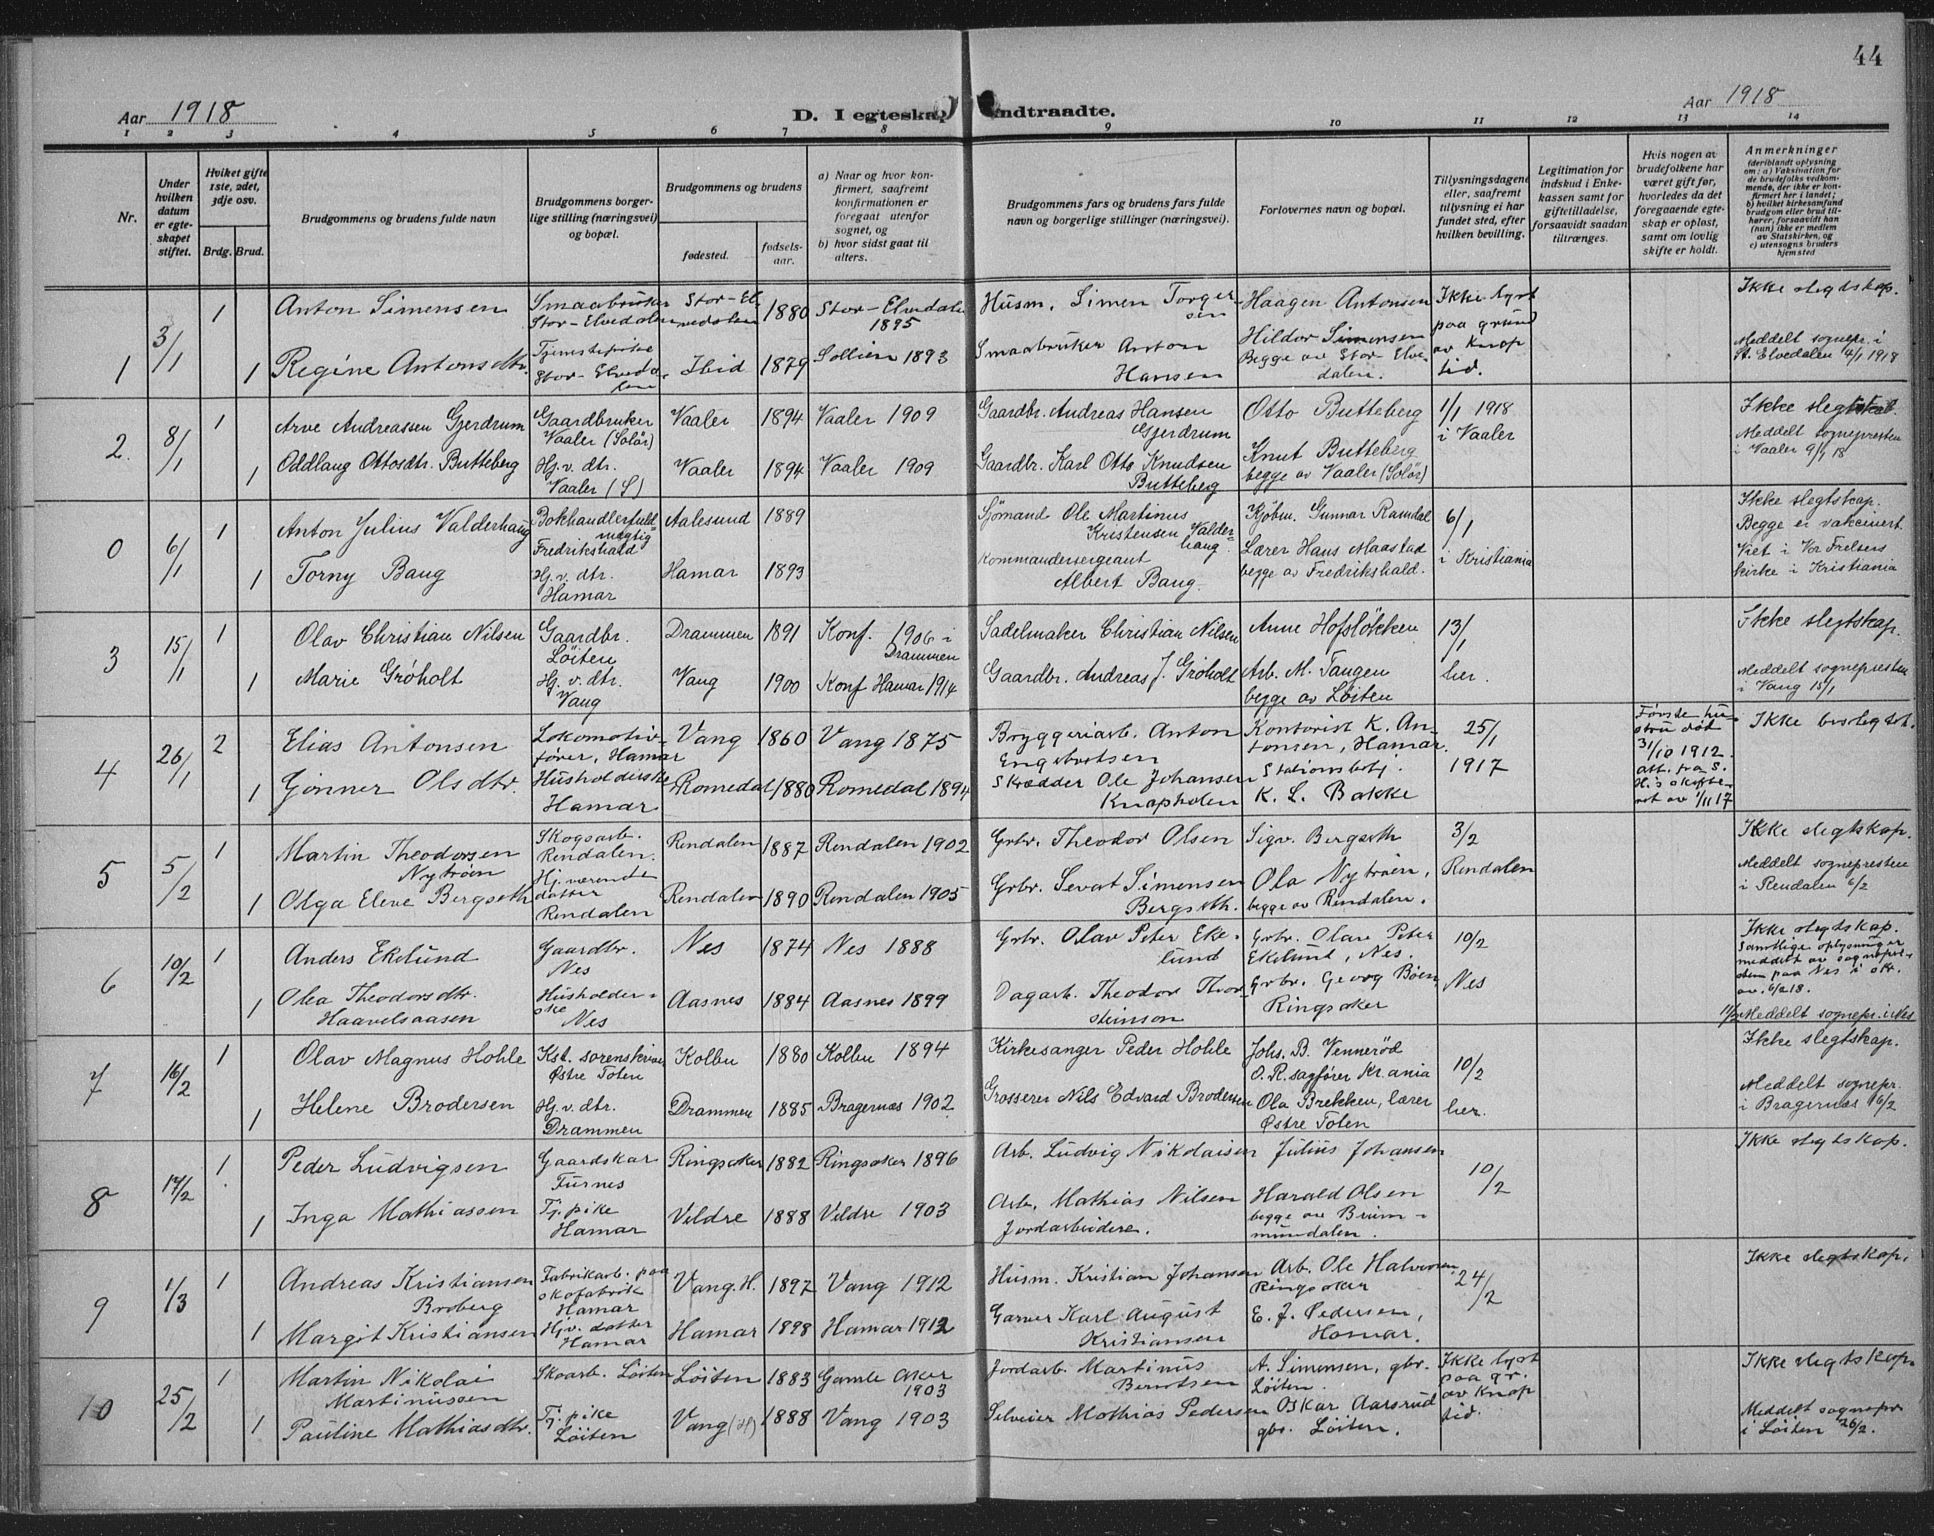 44
Aar 1918
D. I egteska
indtraadte.
Aar 1918
1 2 3 4 5 6 7 8 9 10 11 12 13 14
Nr.
Under hvilken datum er egteskapet stiftet.
Hvilket gifte 1ste, 2det, 3dje osv.
Brdg. Brud.
Brudgommens og brudens fulde navn
Brudgommens borgerlige stilling (næringsvei) og bopæl.
Brudgommens og brudens
fødested.
fødselsaar.
a) Naar og hvor konfirmert, saafremt konfirmationen er foregaat utenfor sognet, og
b) hvor sidst gaat til alters.
Brudgommens fars og brudens fars fulde navn og borgerlige stillinger (næringsvei).
Forlovernes navn og bopæl.
Tillysningsdagene eller, saafremt tillysning ei har fundet sted, efter hvilken bevilling.
Legitimation for indskud i Enkekassen samt for giftetilladelse, forsaavidt saadan tiltrænges.
Hvis nogen av brudefolkene har været gift før, hvorledes da det foregaaende egteskap er opløst, samt om lovlig skifte er holdt.
Anmerkninger
(deriblandt oplysning om: a) Vaksination for de brudefolks vedkommende, der ikke er konfirmert her i landet; b) hvilket kirkesamfund brudgom eller brud tilhører, forsaavidt han (hun) ikke er medlem av Statskirken, og c) utensogns bruders hjemsted
1
3/1
1
Anton Simensen
Smaabruker Stor-Elvedalen
Stor-Elvedalen
1880
Stor-Elvedalen 1895
Husm. Simen Torgersen
Haagen Antonsen
Ikke lyst paa grund av knap tid.
Ikke slegtskap.
1
Regine Antonsdtr.
Tjenestepike Stor-Elvedalen
Ibid
1879
Sollien 1893
Smaabruker Anton Hansen
Hildor Simensen
Begge av Stor-Elvedalen.
Meddelt sognepr. i St. Elvedalen 4/1 1918
2.
8/1
1
Arve Andreassen Gjerdrum
Gaardbruker Vaaler (Solør)
Vaaler
1894
Vaaler 1909
Gaardbr. Andreas Hansen Gjerdrum
Otto Butteberg
1/1 1918 i Vaaler
Ikke slegtskab
1
Oddlaug Ottosdtr. Butteberg
Hj. v. dtr. Vaaler (S)
Vaaler
1894
Vaaler 1909
Gaardbr. Karl Otto Knudsen Butteberg
Knut Butteberg
begge av Vaaler (Solør)
Meddelt sognepresten i Vaaler 9/1 18
0
6/1
1
Anton Julius Valderhaug
Bokhandlerfuldmægtig Fredrikshald
Aalesund
1889
Sjømand Ole Martinus Kristensen Valderhaug
Kjøbm. Gunnar Ramdal
6/1 i Kristiania
Ikke slegtskap.
Begge er vakcinert.
1
Torny Baug
Hj. v. dtr. Hamar
Hamar
1893
Kommandersergeant Albert Baug
Lærer Hans Maastad
begge av Fredrikshald.
Viet i Vor Frelsers kirke i Kristiania
3
15/1
1
Olav Christian Nilsen
Gaardbr. Løiten
Drammen
1891
Konf. 1906 i Drammen
Sadelmaker Christian Nilsen
Anne Hofsløkken
13/1 her.
Ikke slegtskap.
1
Marie Grøholt
Hj. v. dtr. Vang
Vang
1900
Konf Hamar 1914
Gaardbr. Andreas J. Grøholt
Arb. M. Tangen
begge av Løiten
Meddelt sognepresten i Vang 15/1
4
26/1
2
Elias Antonsen
Lokomotivfører, Hamar
Vang
1860
Vang 1875
Bryggeriarb. Anton Engebretsen
Kontorist K. Antonsen, Hamar.
25/1 1917
Første hustru død 31/10 1912. att. fra S. H.s skifteret av 1/11 17
Ikke beslegtet.
1
Gønner Olsdtr.
Husholderske Hamar
Romedal
1880
Romedal 1894
Skrædder Ole Johansen Knapholen
Stationsbetj. K. L. Bakke
5
5/2
1
Martin Theodorsen Nytrøen
Skogsarb. Rendalen.
Rendalen
1887
Rendalen 1902
Grbr. Theodor Olsen
Sigv. Bergseth
3/2 Rendalen
Ikke slegtskap.
1
Olga Eleve Bergseth
Hj. værende datter Rendalen
Rendalen
1890
Rendalen 1905
Grbr. Sevat Simensen Bergseth.
Ola Nytrøen,
begge av Rendalen.
Meddelt sognepresten i Rendalen 6/2
6
10/2
1
Anders Ekelund
Gaardbr. Nes
Nes
1874
Nes 1888
Grbr. Olav Peter Ekelund
Grbr. Olav Peter Ekelund, Nes.
10/2 Nes
Ikke slegtskap.
Samtlige oplysninger meddelt av sognepresten paa Nes i skr. av. 6/2 18.
1
Olea Theodorsdtr. Haavelsaasen
Husholderske Nes
Aasnes
1884
Aasnes 1899
Dagarb. Theodor Thorsteinson
Grbr. Georg Bøen Ringsaker
11/2 Meddelt sognepr. i Nes
7
16/2
1
Olav Magnus Hohle
Kst. sorenskriver Østre Toten
Kolbu
1880
Kolbu 1894
Kirkesanger Peder Hohle
Johs. B. Vennerød
O. R. sagfører Kr.ania
10/2 her.
Ikke slegtskap.
1
Helene Brodersen
Hj. v. dtr. Drammen
Drammen
1885
Bragernæs 1902
Grosserer Nils Edvard Brodersen
Ola Brekken, lærer Østre Toten
Meddelt sognepr. i Bragernæs 16/2
8
17/2
1
Peder Ludvigsen
Gaardskar Furnes
Ringsaker
1882
Ringsaker 1896
Arb. Ludvig Nikolaisen
Julius Johansen
10/2
Ikke slegtskap.
1
Inga Mathiassen
Tj. pike Hamar
Veldre
1888
Veldre 1903
Arb. Mathias Nilsen Jordarbeidere.
Harald Olsen
begge av Brummundalen.
9
1/3
1
Andreas Kristiansen Broberg
Fabrikarb. paa skofabrik Hamar
Vang. H.
1897
Vang 1912
Husm. Kristian Johansen
Arb. Ole Halvorsen Ringsaker
24/2
Ikke slegtskap.
1
Margit Kristiansen
Hjv. datter Hamar
Hamar
1898
Hamar 1912
Garver Karl August Kristiansen
E. J. Pedersen, Hamar.
10
25/2
1
Martin Nikolai Martinussen
Skoarb. Løiten
Løiten
1883
Gamle Aker 1903
Jordarb. Martinus Berntsen
A. Simensen, gbr. Løiten.
Ikke lyst paa gr. av knap tid.
Ikke slegtskap.
1
Pauline Mathiasdtr.
Tj. pike Løiten
Vang (H)
1888
Vang 1903
Selveier Mathias Pedersen
Oskar Aarsrud gbr. Løiten.
Meddelt sognepr i Løiten 26/2.